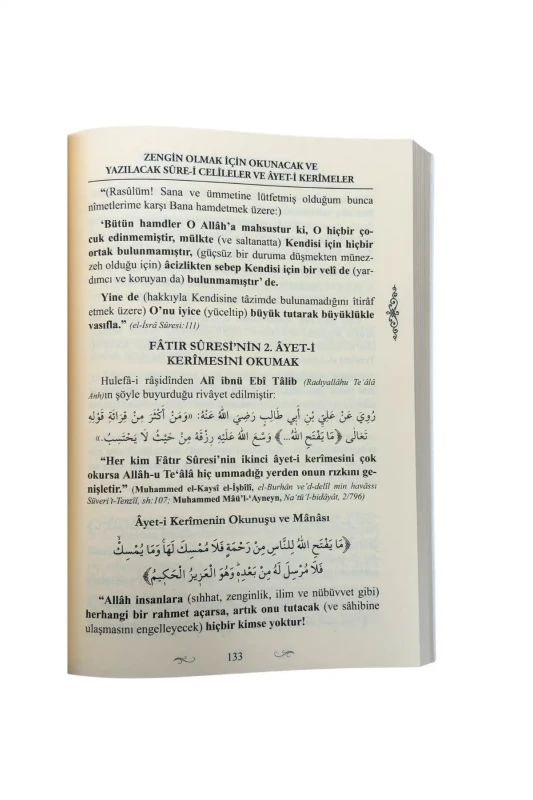 ZENGİN OLMAK İÇİN OKUNACAK VE
YAZILACAK SÛRE-İ CELÎLELER VE ÂYET-İ KERÎMELER
“(Rasûlüm! Sana ve ümmetine lütfetmiş olduğum bunca
nîmetlerime karşı Bana hamdetmek üzere:)
‘Bütün hamdler O Allâh’a mahsustur ki, O hiçbir ço-
cuk edinmemiştir, mülkte (ve saltanatta) Kendisi için hiçbir
ortak bulunmamıştır, (güçsüz bir duruma düşmekten münez-
zeh olduğu için) âcizlikten sebep Kendisi için bir velî de (yar-
dımcı ve koruyan da) bulunmamıştır’ de.
Yine de (hakkıyla Kendisine tâzimde bulunamadığını itirâf
etmek üzere) O’nu iyice (yüceltip) büyük tutarak büyüklükle
vasıfla.” (el-İsrâ Sûresi:111)
FÂTIR SÛRESİ’NİN 2. ÂYET-İ
KERÎMESİNİ OKUMAK
Hulefâ-i râşidînden Alî ibnü Ebî Tâlib (Radıyallâhu Te‘âlâ
Anh)ın şöyle buyurduğu rivâyet edilmiştir:
رُوِيَ عَنْ عَلِيِّ بْنِ أَبِي طَالِبٍ رَضِيَ اللهُ عَنْهُ: «وَمَنْ أَكْثَرَ مِنْ قِرَائَةِ قَوْلِهِ
تَعَالَى ﴿مَا يَفْتَحِ اللهُ...﴾ وَسَّعَ اللهُ عَلَيْهِ رِزْقَهُ مِنْ حَيْثُ لَا يَحْتَسِبُ.»
“Her kim Fâtır Sûresi’nin ikinci âyet-i kerîmesini çok
okursa Allâh-u Te‘âlâ hiç ummadığı yerden onun rızkını ge-
nişletir.” (Muhammed el-Kaysî el-İşbîlî, el-Burhân ve’d-delîl min havâssı
Süveri’t-Tenzîl, sh:107; Muhammed Mâü’l-‘Ayneyn, Na‘tü’l-bidâyât, 2/796)
Âyet-i Kerîmenin Okunuşu ve Mânâsı
﴿مَا يَفْتَحِ اللهُ لِلنَّاسِ مِنْ رَحْمَةٍ فَلَا مُمْسِكَ لَهَاۚ وَمَا يُمْسِكْۙ
فَلَا مُرْسِلَ لَهُ مِنْ بَعْدِهِۜ وَهُوَ الْعَزِيزُ الْحَكِيمُ﴾
“Allâh insanlara (sıhhat, zenginlik, ilim ve nübüvvet gibi)
herhangi bir rahmet açarsa, artık onu tutacak (ve sâhibine
ulaşmasını engelleyecek) hiçbir kimse yoktur!
133